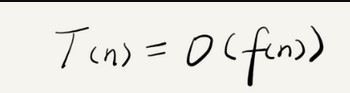 T(n) = O(f(n))